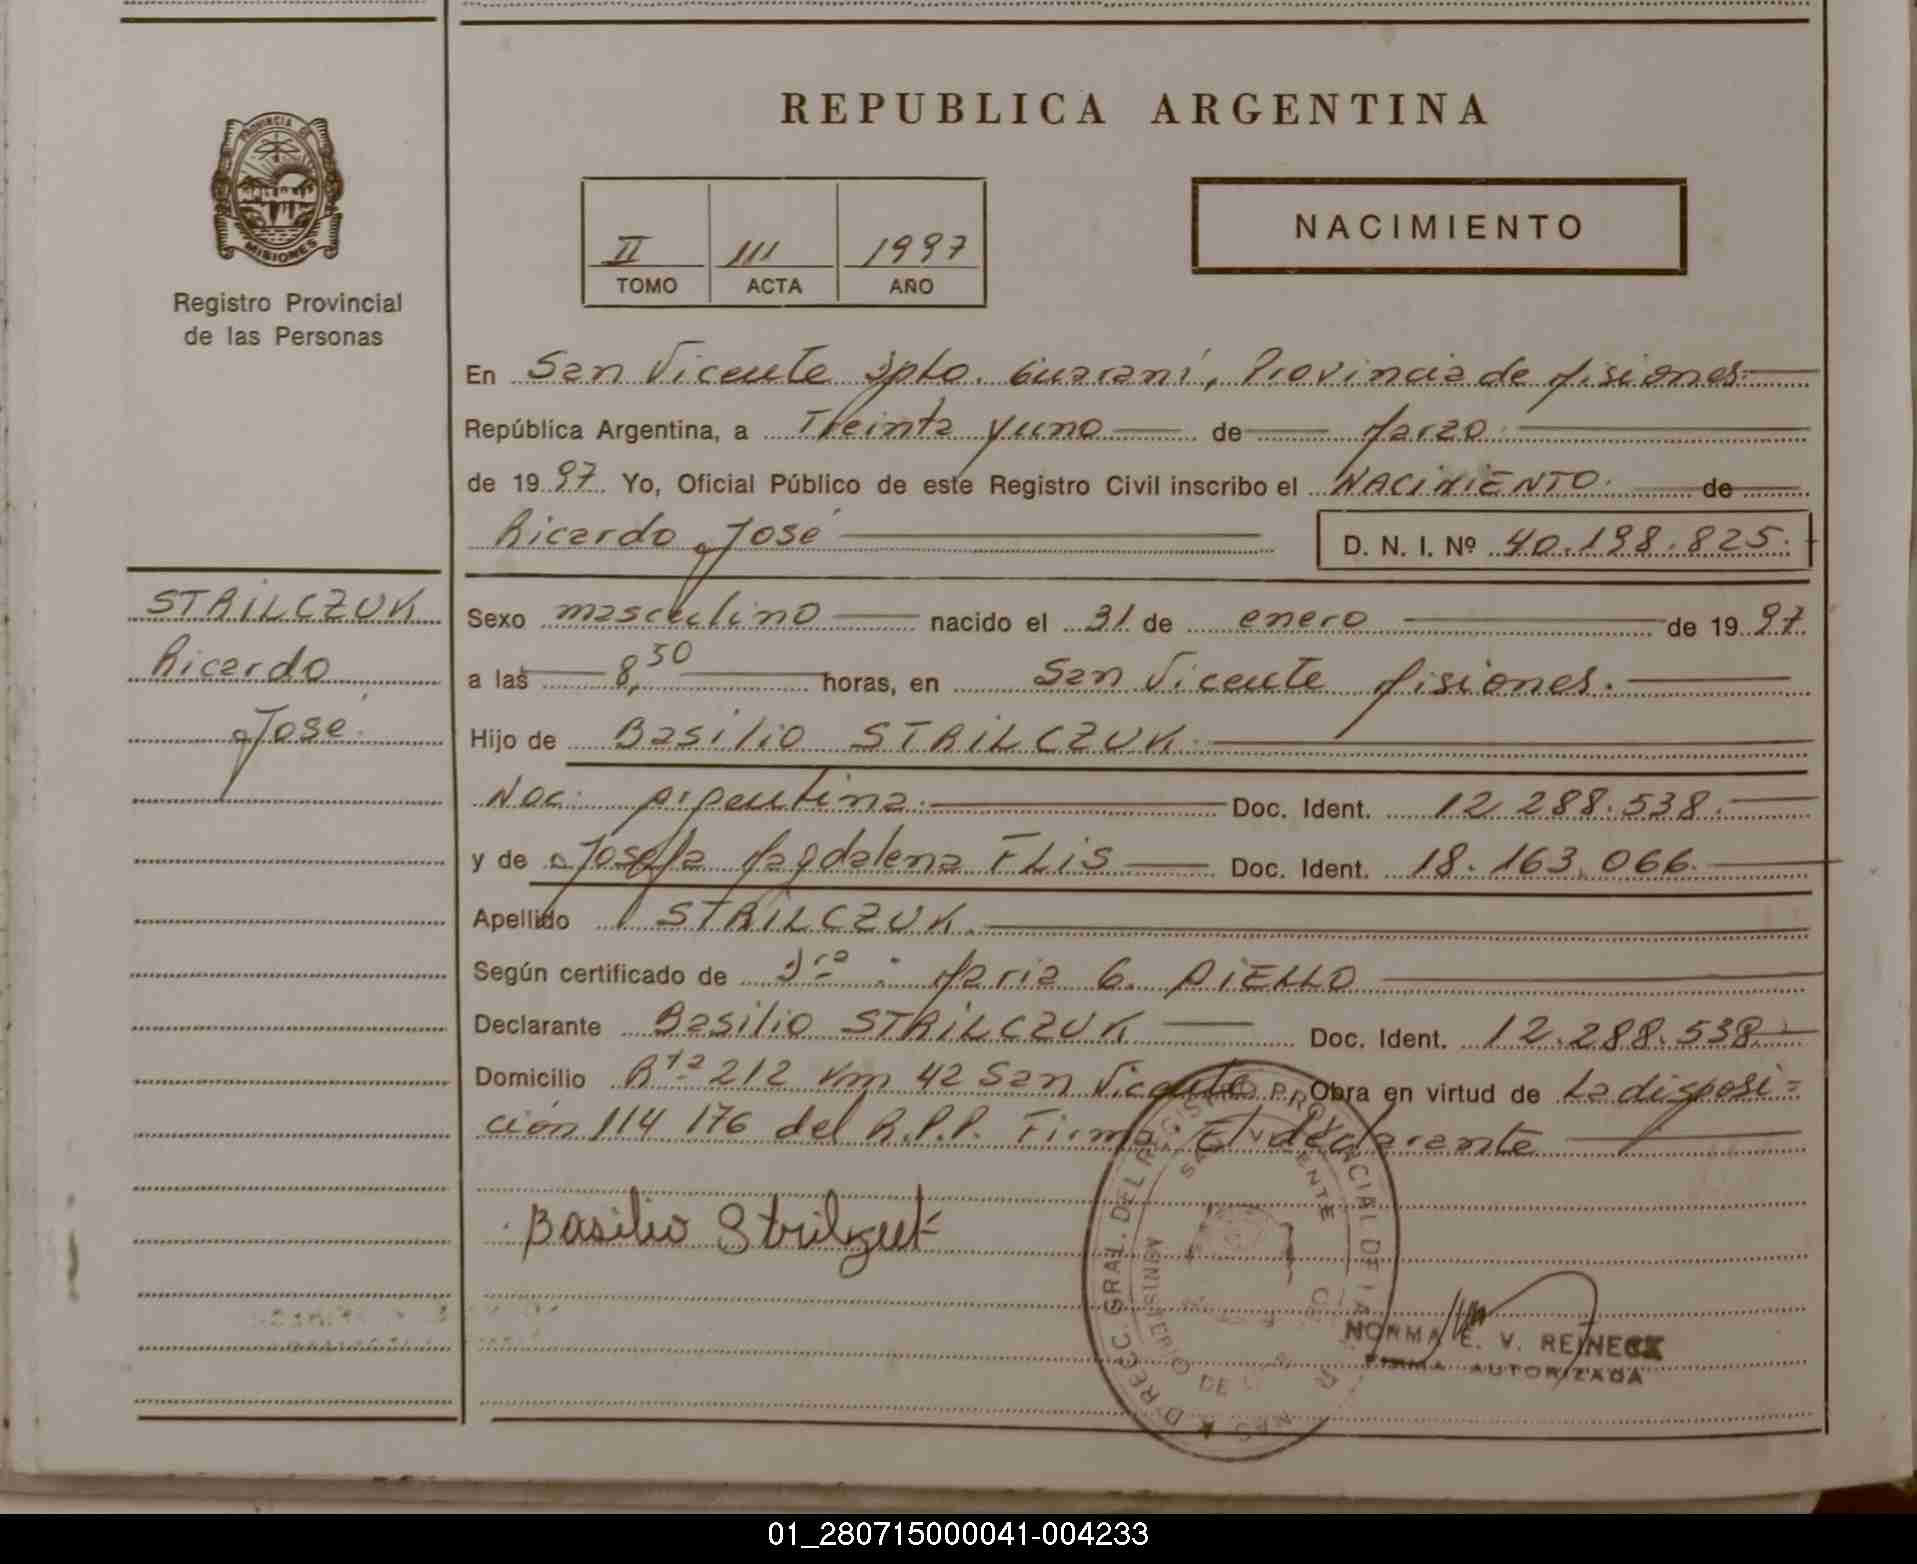 REPUBLICA ARGENTINA
PROVINCIA DE
MISIONES
Registro Provincial
de las Personas
II 111 1997
TOMO ACTA AÑO
NACIMIENTO
En San Vicente Dpto. Guaraní, Provincia de Misiones
República Argentina, a Treinta y uno de Marzo
de 1997 Yo, Oficial Público de este Registro Civil inscribo el NACIMIENTO de
Ricardo José D. N. I. Nº 40.198.825.
STRILCZUK
Ricardo
José
Sexo masculino nacido el 31 de enero de 1997
a las 8,50 horas, en San Vicente Misiones.
Hijo de Basilio STRILCZUK
Nac. Argentina. Doc. Ident. 12.288.538.
y de Josefa Magdalena FLIS Doc. Ident. 18.163.066.
Apellido STRILCZUK.
Según certificado de Dra. Maria G. AIELLO
Declarante Basilio STRILCZUK Doc. Ident. 12.288.538.
Domicilio Rta 212 Km 42 San Vicente Obra en virtud de La disposi=
ción 114 176 del R.P.P. Firma El declarante
Basilio Strilczuk
NORMA E. V. REINECK
FIRMA AUTORIZADA
01_280715000041-004233